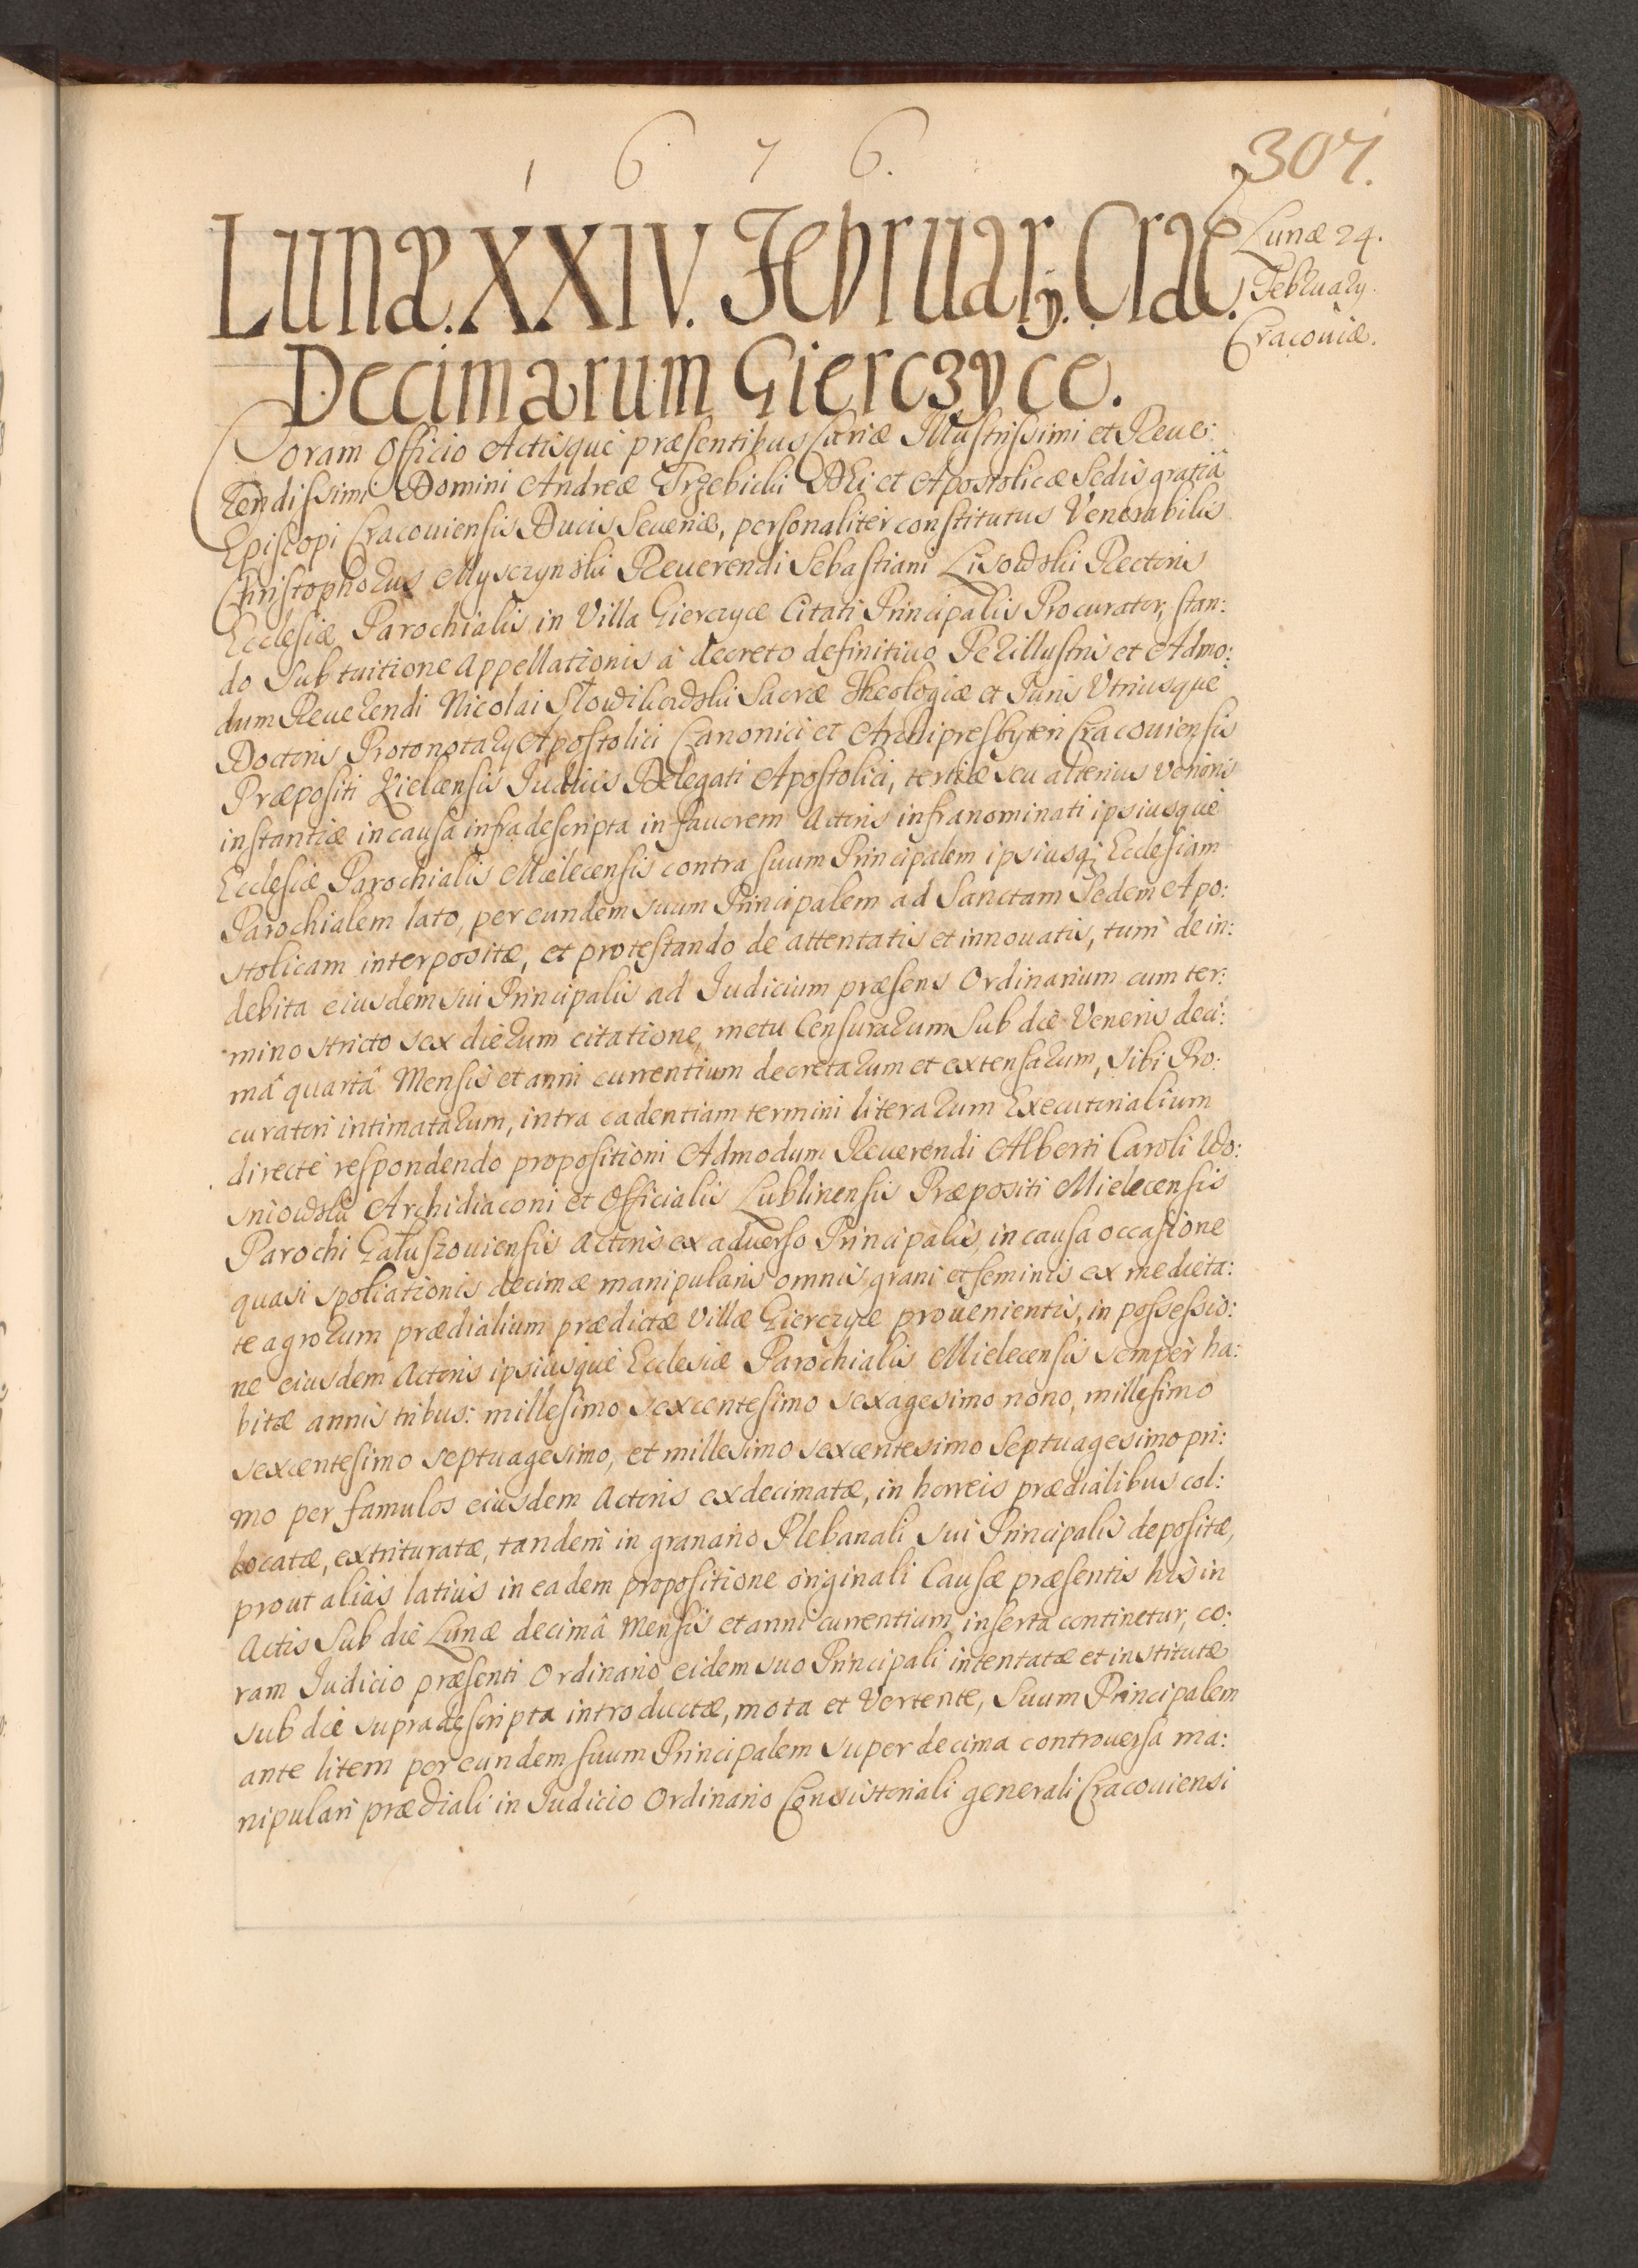 1 6 7 6.
307.
Lunæ. XXIV. Februarÿ. Crac.
Lunæ 24.
Februarÿ.
Cracoviæ.
Decimarum Gierczyce.
Coram Officio Actisque præsentibus Curiæ Illustrissimi et Reue:
rendissimi Domini Andreæ Trzebicki DEi et Apostolicæ Sedis gratiâ
Episcopi Cracouiensis Ducis Seueriæ, personaliter constitutus Venerabilis
Christophorus Mysczynski Reuerendi Sebastiani Lisowski Rectoris
Ecclesiæ Parochialis in Villa Gierczyce Citati Principalis Procurator, stan:
do sub tuitione appellationis à decreto definitiuo Perillustris et Admo:
dum Reuerendi Nicolai Słowikowski Sacræ Theologiæ et Juris Vtriusque
Doctoris Protonotarÿ Apostolici Canonici et Archipresbyteri Cracouiensis
Præpositi Kielcensis Iudicis Delegati Apostolici, tertiæ seu alterius verioris
instantiæ in causa infradescripta in fauorem Actoris infranominati ipsiusque
Ecclesiæ Parochialis Mielecensis contra suum Principalem ipsiusq; Ecclesiam
Parochialem lato, per eundem suum Principalem ad Sanctam Sedem Apo:
stolicam interpositæ, et protestando de attentatis et innouatis, tum de in:
debita eiusdem sui Principalis ad Iudicium præsens Ordinarium cum ter:
mino stricto sex dierum citatione, metu Censurarum sub die Veneris deci:
mâ quartâ Mensis et anni currentium decretarum et extensarum, sibi Pro:
curatori intimatarum, intra cadentiam termini literarum Executorialium
directe respondendo propositioni Admodum Reuerendi Alberti Caroli Wo:
sniowski Archidiaconi et Officialis Lublinensis Præpositi Mielecensis
Parochi Gałuszouiensis Actoris ex aduerso Principalis, in causa occasione
quasi spoliationis decimæ manipularis omnis grani et seminis ex medieta:
te agrorum prædialium prædictæ Villæ Gierczyce prouenientis, in possessio:
ne eiusdem Actoris ipsiusque Ecclesiæ Parochialis Mielecensis semper ha:
bitæ annis tribus: millesimo sexcentesimo sexagesimo nono, millesimo
sexcentesimo septuagesimo, et millesimo sexcentesimo septuagesimo pri:
mo per famulos eiusdem Actoris exdecimatæ, in horreis prædialibus col:
locatæ, extrituratæ, tandem in granario Plebanali sui Principalis depositæ,
prout alias latius in eadem propositione originali Causæ præsentis his in
Actis sub die Lunæ decimâ Mensis et anni currentium inserta continetur, co:
ram Iudicio præsenti Ordinario eidem suo Principali intentatæ et institutæ
sub die supradescripta introductæ, mota et vertente, suum Principalem
ante litem per eundem suum Principalem super decima controuersa ma:
nipulari prædiali in Iudicio Ordinario Consistoriali generali Cracouiensi